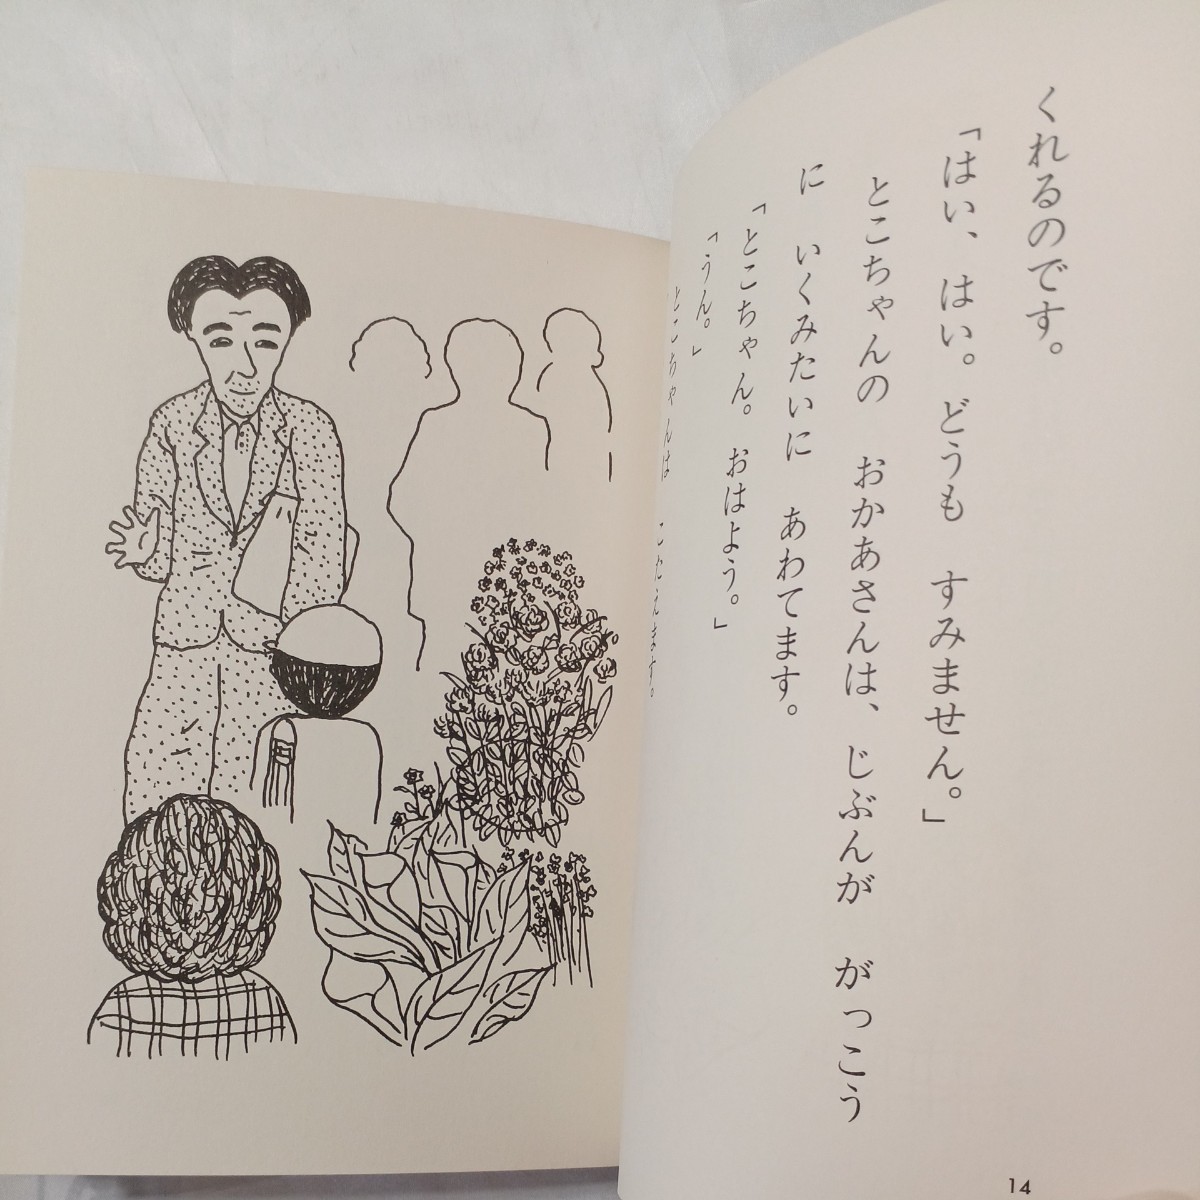 くれるのです。
「はい、はい。どうも　すみません。」
とこちゃんの　おかあさんは、じぶんが　がっこう
に　いくみたいに　あわてます。
「とこちゃん。おはよう。」
「うん。」
とこちゃんは　こたえます。
14